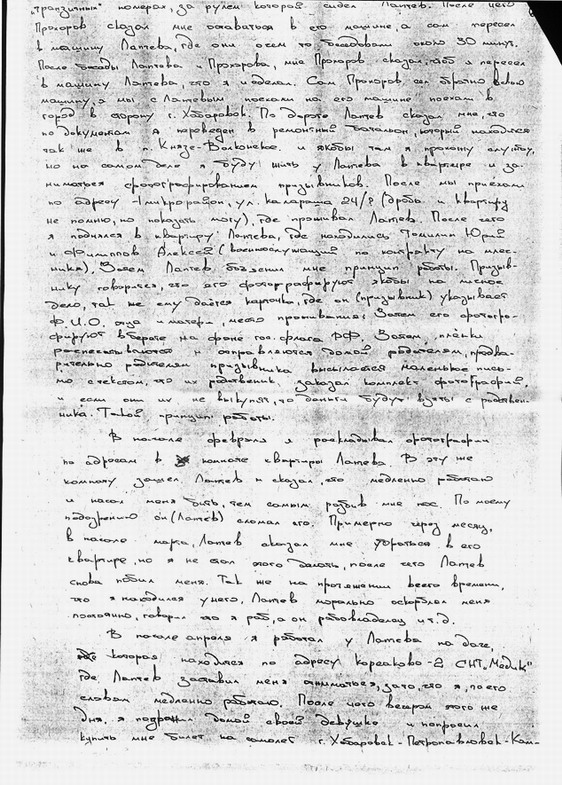 „транзитных" номерах, за рулем которой сидел Лаптев. После чего
Прохоров сказал мне оставаться в его машине, а сам пересел
в машину Лаптева, где они о чем то беседовали около 30 минут.
После беседы Лаптева и Прохорова, мне Прохоров сказал, чтоб я пересел
в машину Лаптева, что я и сделал. Сам Прохоров сел обратно в свою
машину, а мы с Лаптевым поехали на его машине поехали в
город в сторону г. Хабаровск. По дороге Лаптев сказал мне, что
по документам я переведен в ремонтный батальон, который находится
так же в п. Князе-Волконское. и якобы там я прохожу службу,
но на самом деле я буду жить у Лаптева в квартире и за-
ниматься фотографированием призывников. После мы приехали
по адресу - микрорайон, ул. Калараша 24/? (дробь и квартиру
не помню, но показать могу), где проживал Лаптев. После чего
я поднялся в квартиру Лаптева, где находились Томилин Юрий
и Филиппов Алексей (военнослужащий по контракту на
). Затем Лаптев объяснил мне принцип работы. Призыв-
нику говорится, что его фотографируют якобы на личное
дело, так же ему даётся карточка, где он (призывник) указывает
Ф.И.О. отца и матери, место проживания. Затем его фотогра-
фируют в берете на фоне гос. флага РФ. Затем, плёнки
распечатываются и отправляются домой родителям, предва-
рительно родителям призывника высылается маленькое пись-
мо с текстом, что их родственник заказал комплект фотографий,
и если они их не выкупят, то деньги будут взяты с родствен-
ника. Такой принцип работы.
В начале февраля я раскладывал фотографии
по адресам в комнате квартиры Лаптева. В эту же
комнату зашел Лаптев и сказал, что медленно работаю
и начал меня бить, тем самым разбив мне нос. По моему
подозрению он (Лаптев) сломал его. Примерно через месяц,
в начале марта, Лаптев сказал мне убраться в его
квартире, но я не стал этого делать, после чего Лаптев
снова побил меня. Так же на протяжении всего времени,
что я находился у него, Лаптев морально оскорблял меня
постоянно, говорил что я раб, а он рабовладелец и т.д.
В начале апреля я работал у Лаптева на даче,
которая находится по адресу Корсаково-2 СНТ „Медик"
где Лаптев заставил меня отжиматься, за то, что я, по его
словам медленно работаю. После чего вечером этого же
дня, я позвонил домой своей девушке и попросил
купить мне билет на самолет г. Хабаровск - Петропавловск - Кам-